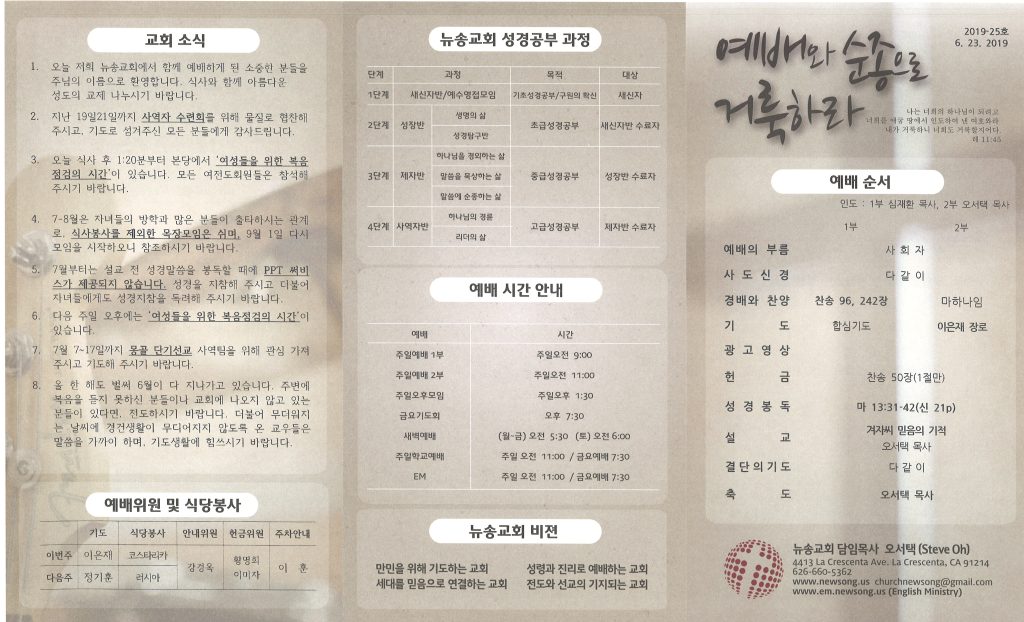 교회 소식
1. 오늘 저희 뉴송교회에서 함께 예배하게 된 소중한 분들을
주님의 이름으로 환영합니다. 식사와 함께 아름다운
성도의 교제 나누시기 바랍니다.
2. 지난 19일21일까지 사역자 수련회를 위해 물질로 협찬해
주시고, 기도로 섬겨주신 모든 분들에게 감사드립니다.
3. 오늘 식사 후 1:20분부터 본당에서 '여성들을 위한 복음
점검의 시간'이 있습니다. 모든 여전도회원들은 참석해
주시기 바랍니다.
4. 7-8월은 자녀들의 방학과 많은 분들이 출타하시는 관계
로, 식사봉사를 제외한 목장모임은 쉬며, 9월 1일 다시
모임을 시작하오니 참조하시기 바랍니다.
5. 7월부터는 설교 전 성경말씀을 봉독할 때에 PPT 써비
스가 제공되지 않습니다. 성경을 지참해 주시고 더불어
자녀들에게도 성경지참을 독려해 주시기 바랍니다.
6. 다음 주일 오후에는 '여성들을 위한 복음점검의 시간'이
있습니다.
7. 7월 7~17일까지 몽골 단기선교 사역팀을 위해 관심 가져
주시고 기도해 주시기 바랍니다.
8. 올 한 해도 벌써 6월이 다 지나가고 있습니다. 주변에
복음을 듣지 못하신 분들이나 교회에 나오지 않고 있는
분들이 있다면, 전도하시기 바랍니다. 더불어 무더워지
는 날씨에 경건생활이 무디어지지 않도록 온 교우들은
말씀을 가까이 하며, 기도생활에 힘쓰시기 바랍니다.
예배위원 및 식당봉사
기도 식당봉사 안내위원 헌금위원 주차안내
이번주 이은재 코스타리카 강경옥 황명희 이 훈
다음주 정기훈 러시아 이미자
뉴송교회 성경공부 과정
단계 과정 목적 대상
1단계 새신자반/예수영접모임 기초성경공부/구원의 확신 새신자
2단계 성장반 생명의 삶 초급성경공부 새신자반 수료자
성경탐구반
3단계 제자반 하나님을 경외하는 삶 중급성경공부 성장반 수료자
말씀을 묵상하는 삶
말씀에 순종하는 삶
4단계 사역자반 하나님의 경륜 고급성경공부 제자반 수료자
리더의 삶
예배 시간 안내
예배 시간
주일예배 1부 주일오전 9:00
주일예배 2부 주일오전 11:00
주일오후모임 주일오후 1:30
금요기도회 오후 7:30
새벽예배 (월-금) 오전 5:30 (토) 오전 6:00
주일학교예배 주일 오전 11:00 / 금요예배 7:30
EM 주일 오전 11:00 / 금요예배 7:30
뉴송교회 비젼
만민을 위해 기도하는 교회 성령과 진리로 예배하는 교회
세대를 믿음으로 연결하는 교회 전도와 선교의 기지되는 교회
예배와 순종으로
거룩하라
2019-25호
6. 23. 2019
나는 너희의 하나님이 되려고
너희를 애굽 땅에서 인도하여 낸 여호와라
내가 거룩하니 너희도 거룩할지어다.
레 11:45
예배 순서
인도 : 1부 심재환 목사, 2부 오서택 목사
1부 2부
예배의 부름 사 회 자
사 도 신 경 다 같 이
경배와 찬양 찬송 96, 242장 마하나임
기 도 합심기도 이은재 장로
광 고 영 상
헌 금 찬송 50장(1절만)
성 경 봉 독 마 13:31-42(신 21p)
설 교 겨자씨 믿음의 기적
오서택 목사
결단의기도 다 같 이
축 도 오서택 목사
뉴송교회 담임목사 오서택 (Steve Oh)
4413 La Crescenta Ave. La Crescenta, CA 91214
626-660-5362
www.newsong.us churchnewsong@gmail.com
www.em.newsong.us (English Ministry)